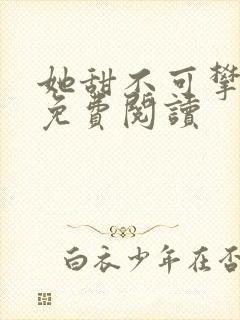 她甜不可攀
免費閱讀
白衣少年在否